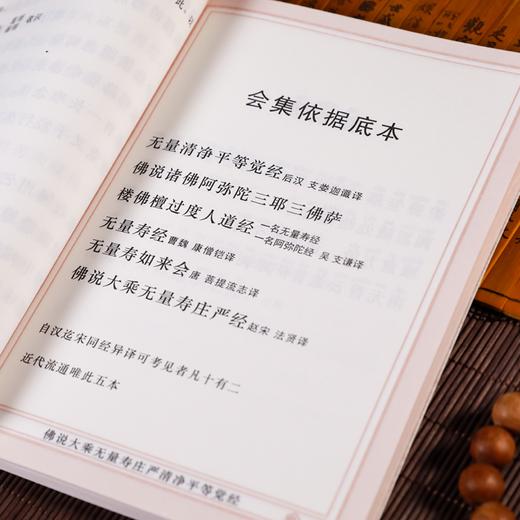 会集依据底本
无量清净平等觉经 后汉 支娄迦谶译
佛说诸佛阿弥陀三耶三佛萨
楼佛檀过度人道经 一名无量寿经
一名阿弥陀经 吴 支谦译
无量寿经 曹魏 康僧铠译
无量寿如来会 唐 菩提流志译
佛说大乘无量寿庄严经 赵宋 法贤译
自汉迄宋同经异译可考见者凡十有二
近代流通唯此五本
佛说大乘无量寿庄严清净平等觉经